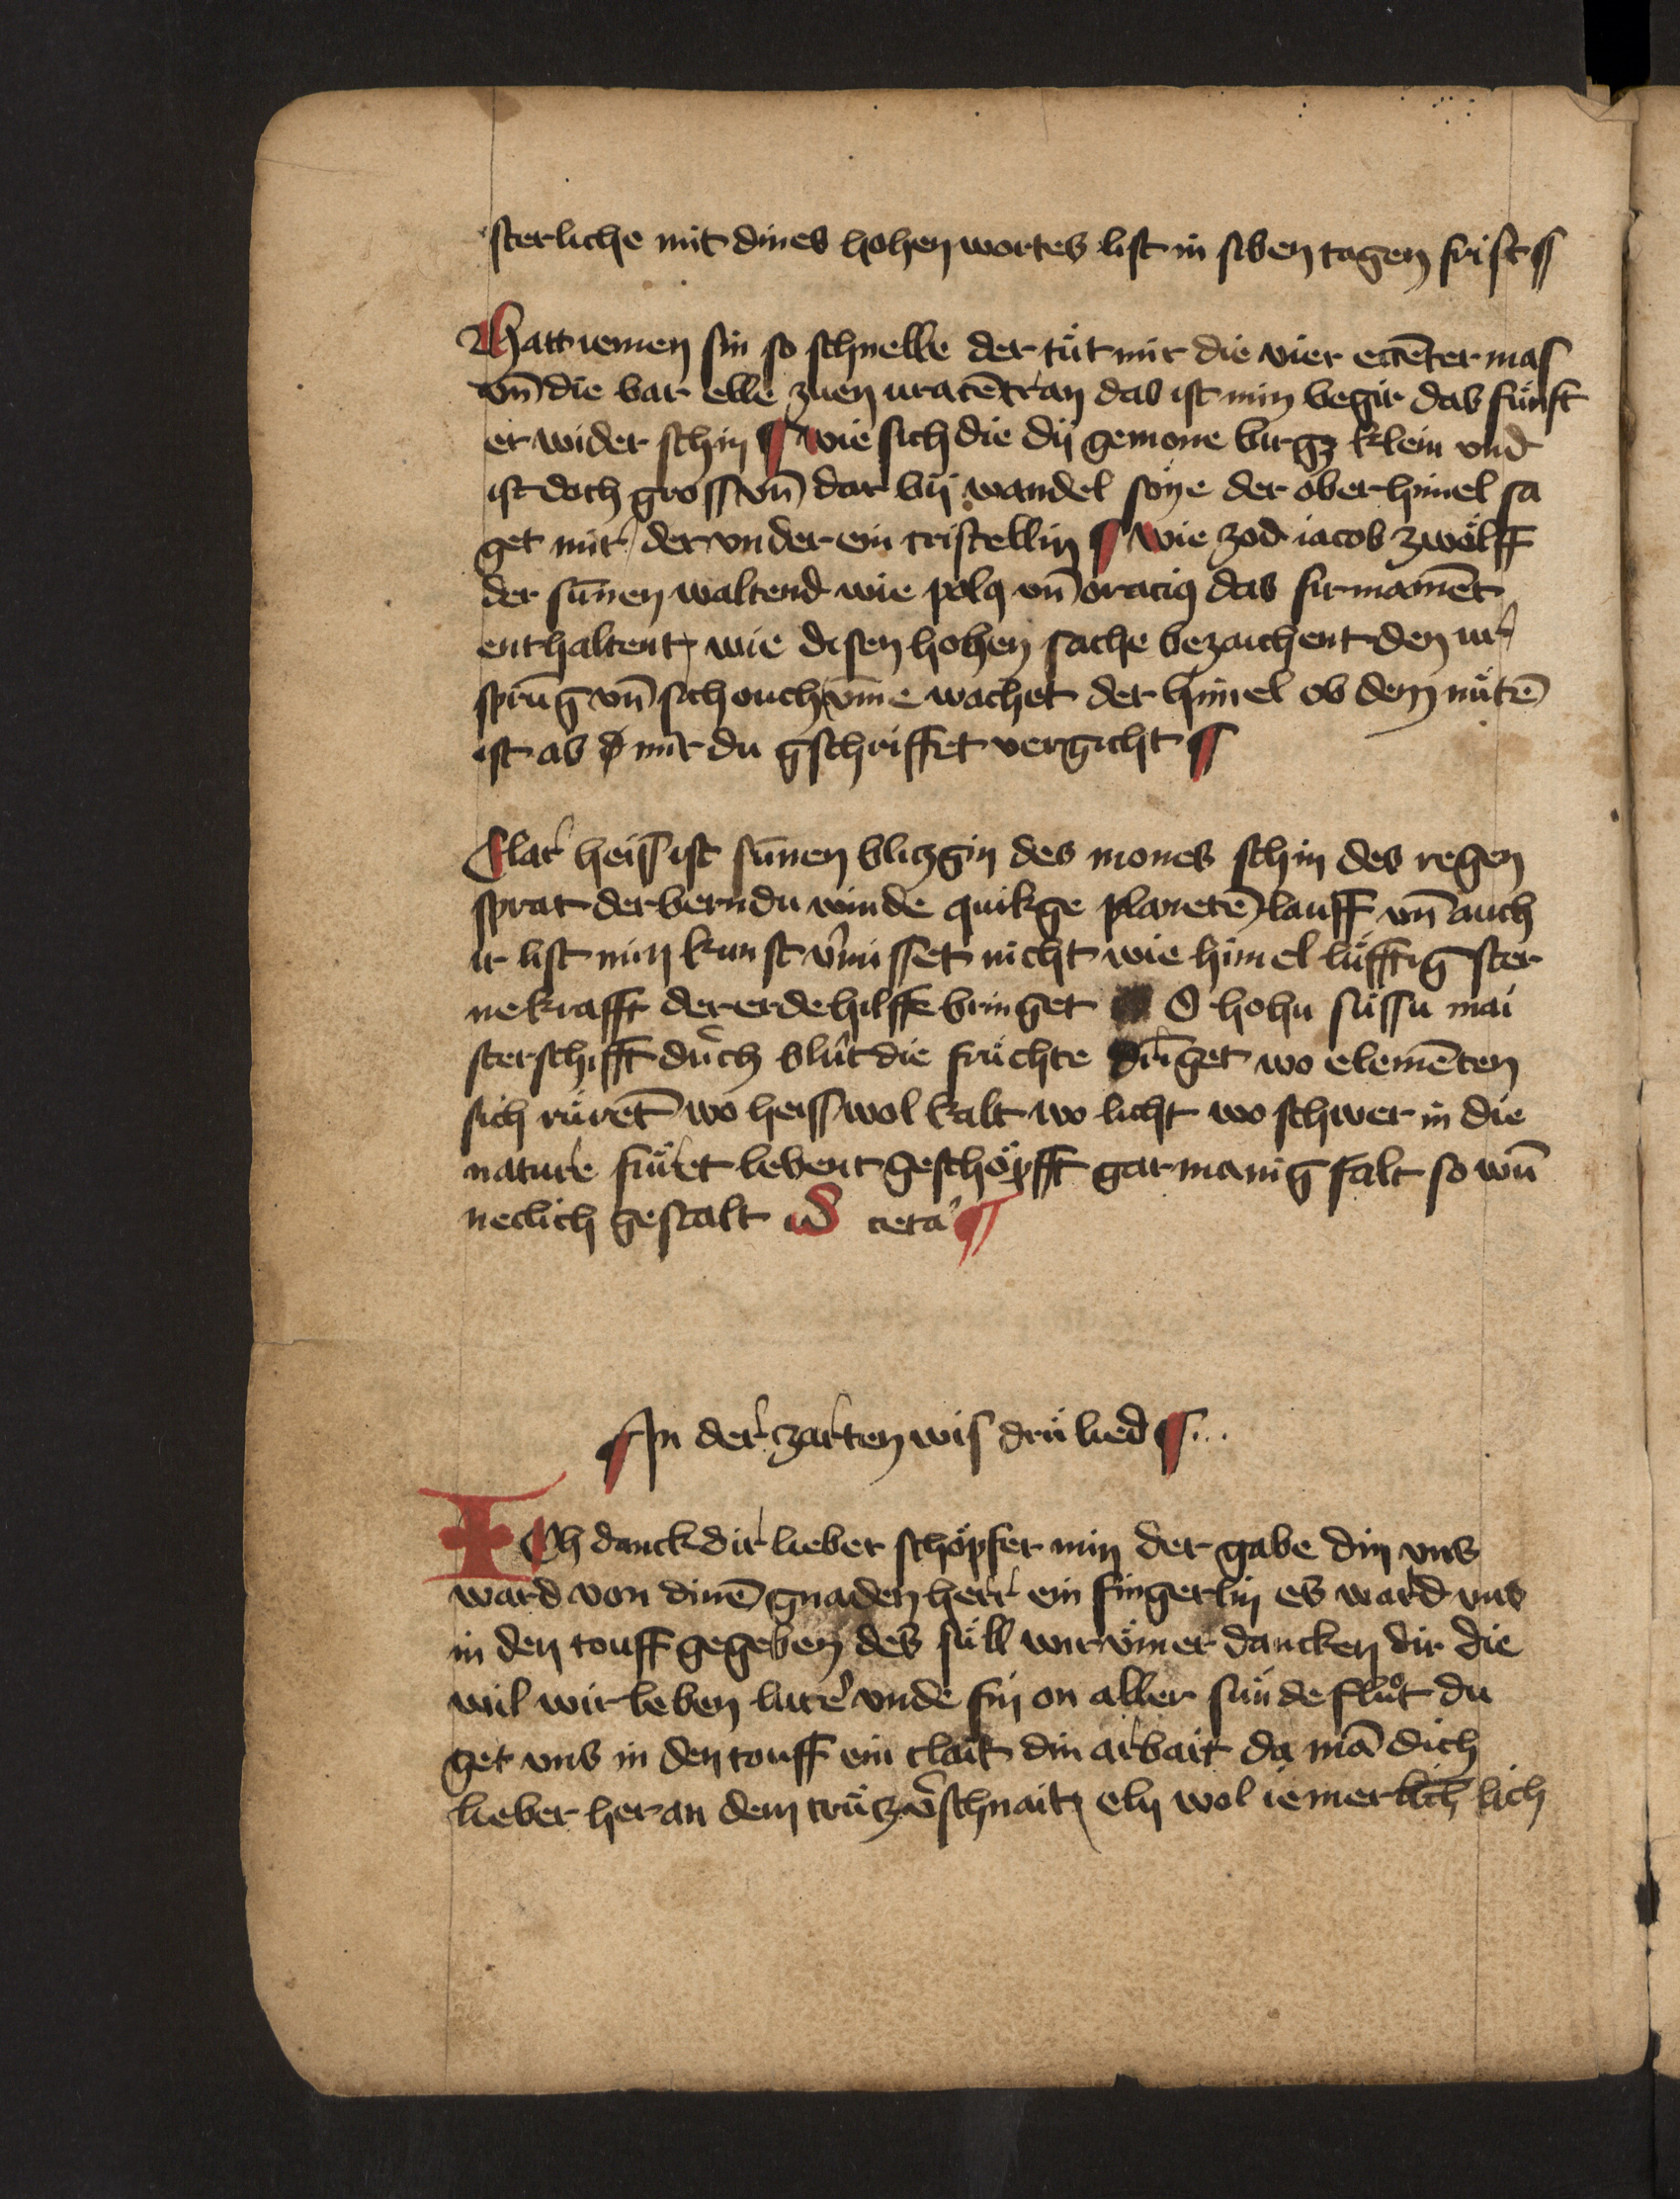 sterliche mit dines hohen wortes list in siben tagen frist ¶
Hatt iemen sin so schnelle der tüt mir die vier ecēter mas
vn̄ die bar elle zuen vracētran das ist min begir das fünft
er wider schin ¶ wie sich die dij gemone birgz klein vnd
ist doch gross vn̄ dar bij wandel söne der ober himel sa
get mir der vnder ein cristellin ¶ wie zod iacob zwölff
der sūnen waltend wie polq vn̄ oraciq das firmamēt
enthaltent wie disen hohen sache bezaichent den ur
sprūg vn̄ sich ouch vm̄e wachet der himel ob dem nütē
ist as mir du gschriffet vergicht ¶
Clar heiss ist sūnen blizgin des mones schin des regen
sprat der bern du winde quikge planetē lauff vn̄ auch
ir list min kunst v̄misset nicht wie himel lüfftig ster
ne krafft der erde hilffe bringet O hohu süssu mai
sterschifft durch blüt die früchte dringet wo elemēten
sich rürēt wo heiss wol kalt wo licht wo schwer in die
nature füret lebent geschöpfft gar manig falt so wū
neclich gestalt cetā ¶
¶ In der zarten wis drü lied ¶
ICh danck dir lieber schöpfer min der gabe din vns
ward von dinē gnaden herr ein fingerlin es ward vns
in den touff gegeben des süll wir ümer dancken dir die
wil wir leben lutē vnde fin on aller sünde flůt du
get vns in den touff ein claik din arbait da mā dich
lieber her an dem crütz v̄schnait ely wol iemerlich lich